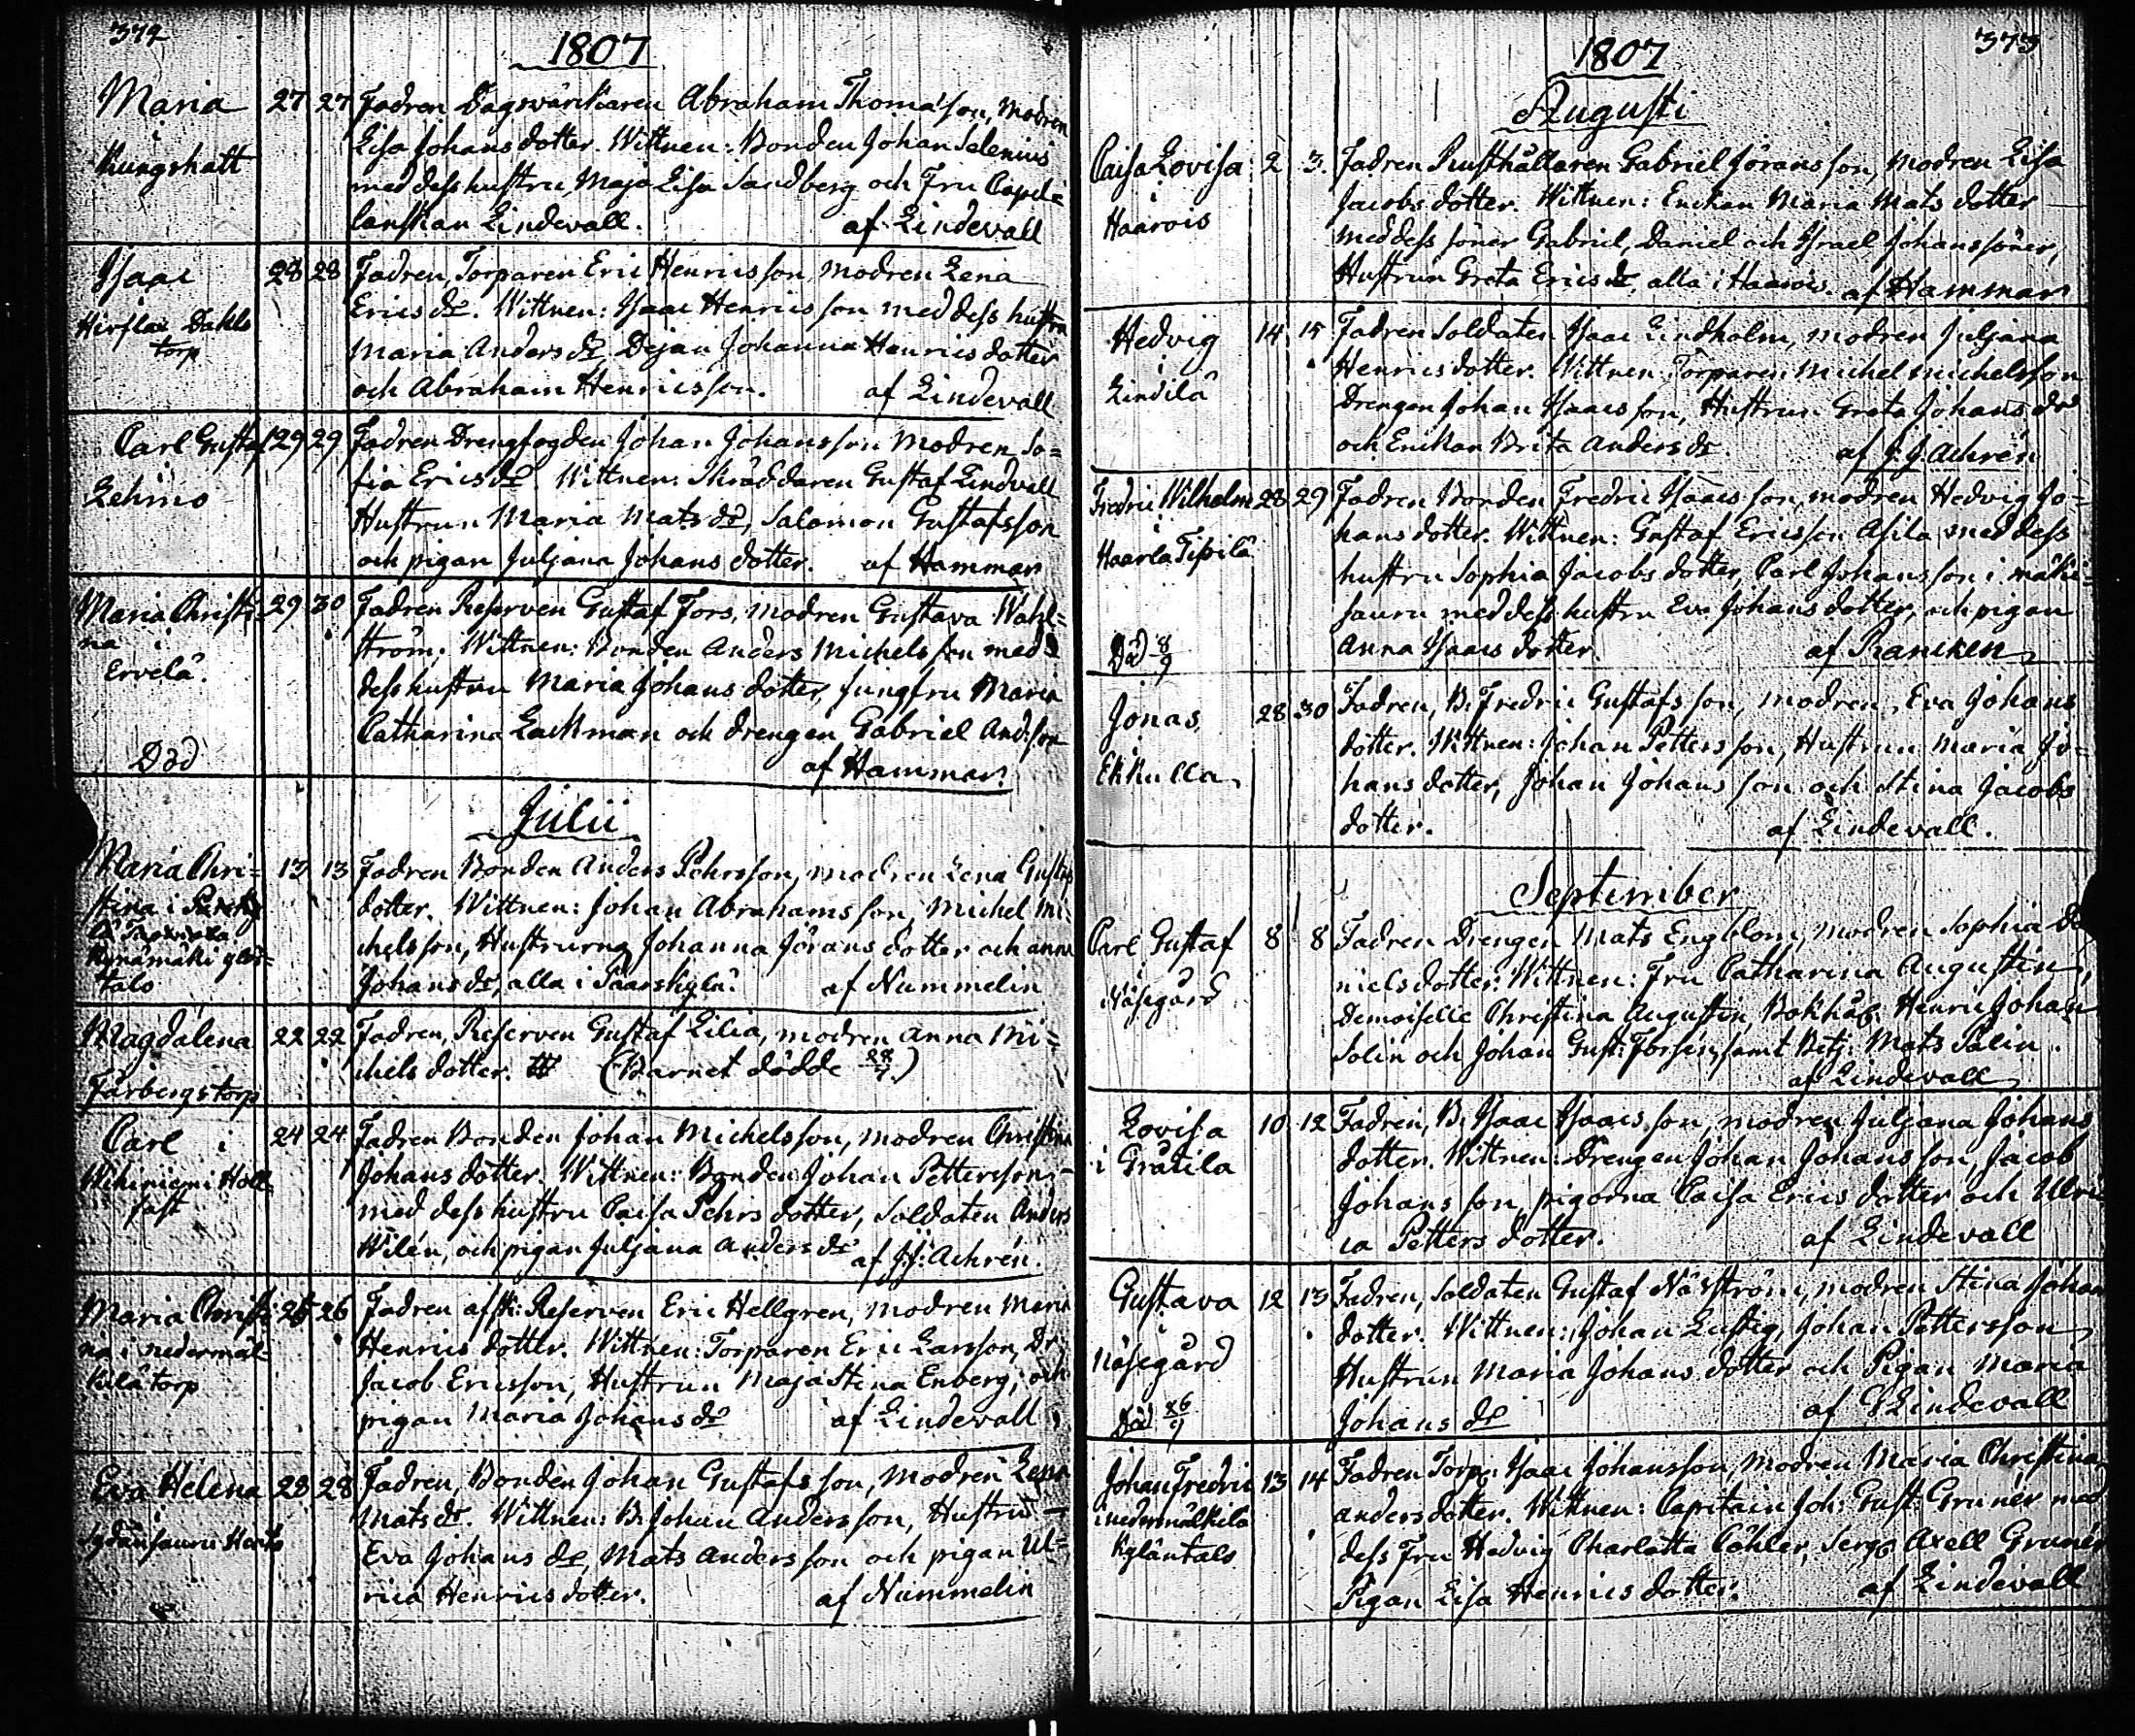 372
1807
Maria 27 27 Fadren Dagswärckaren Abraham Thomasson, Modren
i Lisa Johans dotter. Wittnen: Bonden Johan Selenius
Kungshatt med dess hustru Maja Lisa Sandberg och Fru Capel=
lanskan Lindevall. af Lindevall
Isaac 28 28 Fadren, Torparen Eric Henricsson, modren Lena
Erics dr. Wittnen: Isaac Henricsson med dess hustru
Hirslax Dahls Maria Anders dr, Dejan Johanna Henrics dotter
torp och Abraham Henricsson. af Lindevall
Carl Gustaf 29 29 Fadren Drengfogden Johan Johansson Modren So=
i fia Erics dr. Wittnen: Skräddaren Gustaf Lindvall
Lehmo Hustrun Maria Mats dr, Salomon Gustafsson
och pigan Juljana Johans dotter. af Hammar
Maria Christi= 29 30 Fadren Reserven Gustaf Fors, modren Gustava Wahl=
na i ström. Wittnen: Bonden Anders Michelsson med
Ervelä. dess hustru Maria Johans dotter, Jungfru Maria
Catharina Lackman och drengen Gabriel And:son
Död af Hammar.
Julii
Maria Chri= 13 13 Fadren Bonden Anders Pehrsson, modren Lena Gustafs
stina i dotter. Wittnen: Johan Abrahamsson, Michel Mi=
chelsson, Hustrurna Johanna Jörans dotter och Anna
talo Johans dr, alla i Saarskylä. af Nummelin
Magdalena 22 22 Fadren, Reserven Gustaf Lilia, modren Anna Mi=
chels dotter. (Barnet dödde 28/7.)
Färbergs torp
Carl i 24 24 Fadren Bonden Johan Michelsson, modren Christina
Wihiniemi Holl= Johans dotter. Wittnen: Bonden Johan Pettersson
fast med dess hustru Caisa Pehrs dotter, Soldaten Anders
Wilén, och pigan Juljana Anders dr af J. J. Achrén.
Maria Christi= 25 26 Fadren afsk: Reserven Eric Hellgren, modren Maria
na i nedermäl= Henrics dotter. Wittnen: Torparen Eric Larsson, Dr:
kilä torp Jacob Ericsson, Hustrun Maja Stina Enberg, och
pigan Maria Johans dr af Lindevall
Eva Helena 28 28 Fadren, Bonden Johan Gustafsson, Modren Lena
i Mats dr. Wittnen: B. Johan Andersson, Hustru
Sydänsauru Eva Johans dr, Mats Andersson och pigan Ul=
rica Henrics dotter. af Nummelin
373
1807
Augusti
Caisa Lovisa 2 3. Fadren Rusthållaren Gabriel Jöransson, modren Lisa
i Jacobs dotter. Wittnen: Enckan Maria Mats dotter
Haarois med dess söner Gabriel, Daniel och Israel Johanssöner,
Hustrun Greta Erics dr, alla i Haarois. af Hammar
Hedvig 14 15 Fadren Soldaten Isaac Lindholm, modren Juljana
i Henrics dotter. Wittnen: Torparen Michel Michelsson
Lindilä Drengen Johan Isaacsson, Hustrun Greta Johans dr
och Enckan Brita Anders dr. af J. J. Achrén
Fredric Wilhelm 28 29 Fadren Bonden Fredric Isaacsson, modren Hedvig Jo=
i hans dotter. Wittnen: Gustaf Ericsson Asila med dess
Haarla Tipilä hustru Sophia Jacobs dotter, Carl Johansson i mäki=
sauru med dess hustru Eva Johans dotter, och pigan
Död 8/9 Anna Isaacs dotter. af Rancken
Jonas 28 30 Fadren, B. Fredric Gustafsson, modren Eva Johans
dotter. Wittnen: Johan Pettersson, Hustrun Maria Jo=
Ekkulla hans dotter, Johan Johansson och Stina Jacobs
dotter. af Lindevall.
September
Carl Gustaf 8 8 Fadren Drengen Mats Engblom, modren Sophia Da
i niels dotter. Wittnen: Fru Catharina Augustin,
Näsegård Demoiselle Christina Augustin, Bokhål. Henric Johan
Solin och Johan Gust: Forsén, samt Betj: Mats Salin.
af Lindevall
Lovisa 10 12 Fadren, B. Isaac Isaacsson, modren Juljana Johans
i Grätila dotter. Wittnen: Drengen Johan Johansson, Jacob
Johansson, pigorna Caisa Erics dotter och Ulri
ca Petters dotter. af Lindevall
Gustava 12 13 Fadren, Soldaten Gustaf Näsström, modren Stina Johans
i dotter. Wittnen: Johan Lustig, Johan Pettersson,
Näsegård Hustrun Maria Johans dotter och Pigan Maria
Död 26/9 Johans dr af Lindevall
Johan Fredric 13 14 Fadren Torp. Isaac Johansson, Modren Maria Christina
i nedermälkilä Anders dotter. Wittnen: Capitain Joh: Gust. Grunér med
Kyläntalo dess Fru Hedvig Charlotta Cöhler, Serg. Axell Grunér
Pigan Lisa Henrics dotter. af Lindevall